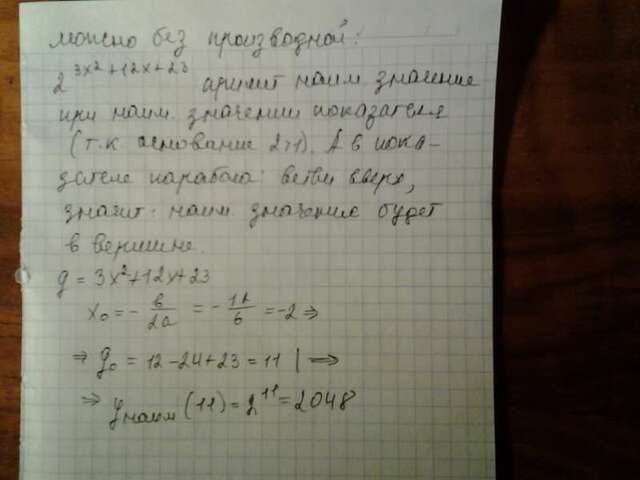 можно без производной:
2^{3x²+12x+23} примет наим. значение
при наим. значении показателя
(т.к основание 2>1). А в пока-
зателе парабола: ветви вверх,
значит наим. значение будет
в вершине.
y = 3x²+12x+23
x₀ = - b/2a = - 12/6 = -2 ⇒
⇒ y₀ = 12-24+23 = 11 | ⇒
⇒ y наим (11) = 2¹¹ = 2048